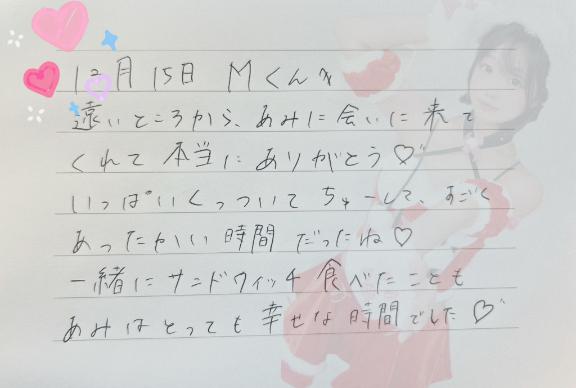 12月15日 Mくんへ
遠いところから、あみに会いに来て
くれて本当にありがとう♡
いっぱいくっついてちゅーして、すごく
あったかい時間だったね♡
一緒にサンドウィッチ食べたことも
あみはとっても幸せな時間でした♡